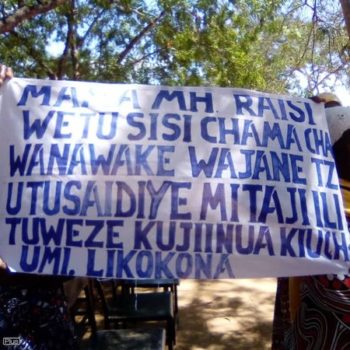 MAMA MH. RAISI
WETU SISI CHAMA CHA
WANAWAKE WAJANE TZ
UTUSAIDIYE MITAJI ILI
TUWEZE KUJIINUA KIUCH-
UMI. LIKOKONA